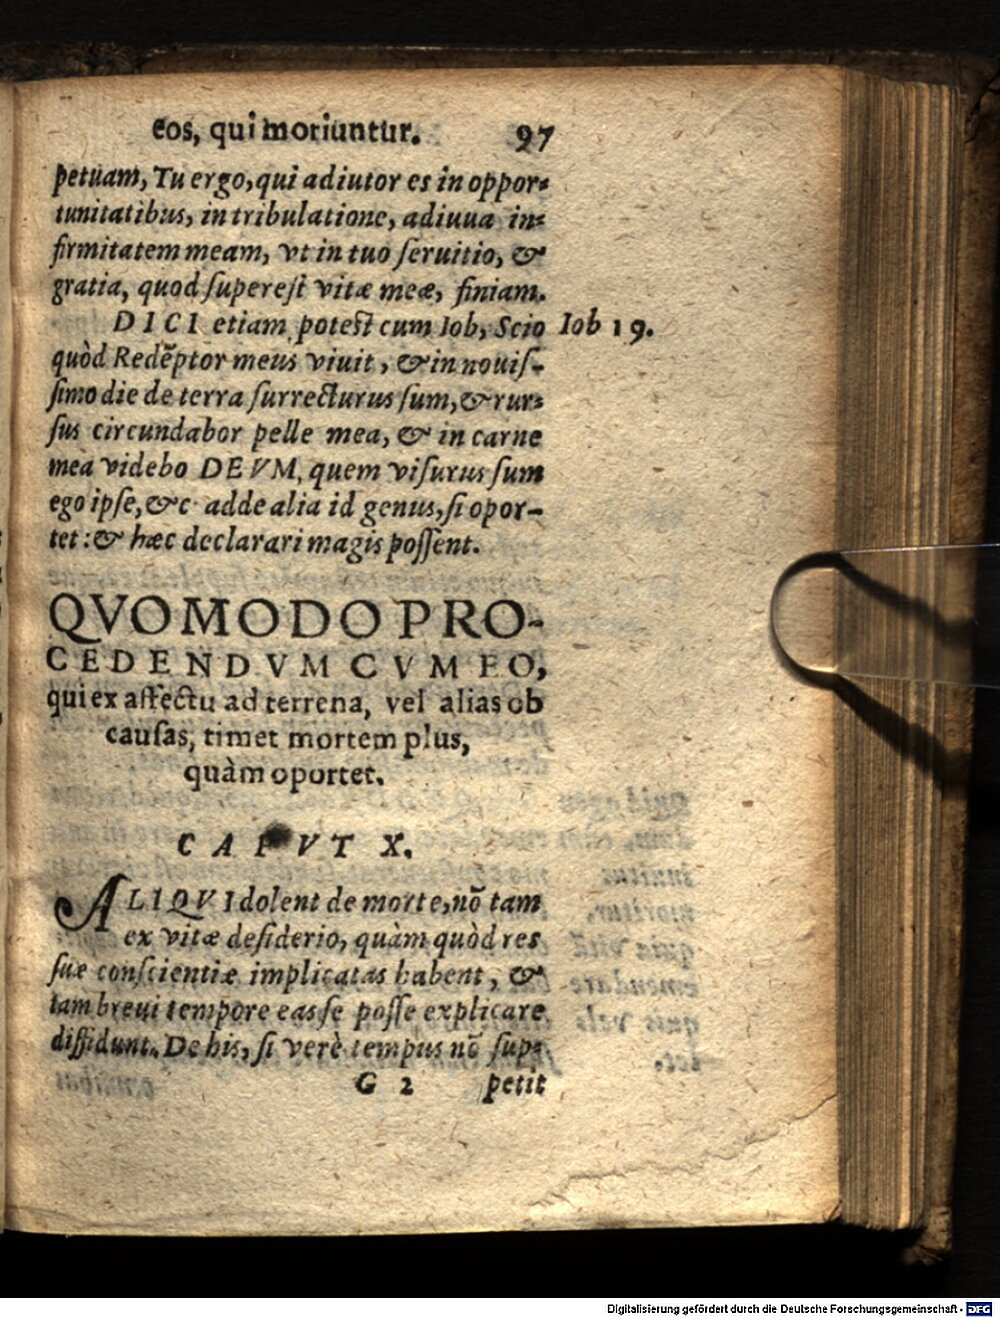 eos, qui moriuntur. 97
petuam, Tu ergo, qui adiutor es in oppor-
tunitatibus, in tribulatione, adiuua in-
firmitatem meam, vt in tuo ſeruitio, &
gratia, quod ſupereſt vitæ meæ, finiam.
DICI etiam poteſt cum Iob, Scio Iob 19.
quòd Redẽptor meus viuit, & in nouiſ-
ſimo die de terra ſurrecturus ſum, & rur-
ſus circundabor pelle mea, & in carne
mea videbo DEVM, quem viſurus ſum
ego ipſe, &c. adde alia id genus, ſi opor-
tet: & hæc declarari magis poſſent.
QVOMODO PRO-
CEDENDVM CVM EO,
qui ex affectu ad terrena, vel alias ob
cauſas, timet mortem plus,
quàm oportet.
CAPVT X.
ALIQVI dolent de morte, nõ tam
ex vitæ deſiderio, quàm quòd res
ſuæ conſcientiæ implicatas habent, &
tam breui tempore eas ſe poſſe explicare
diffidunt. De his, ſi verè tempus nõ ſup-
G 2 petit
Digitalisierung gefördert durch die Deutsche Forschungsgemeinschaft - DFG